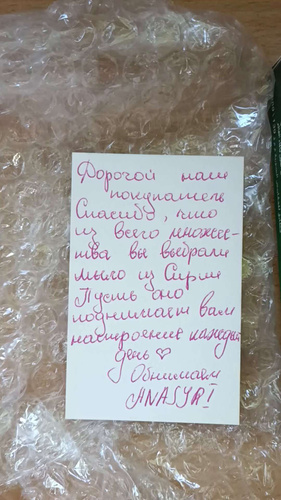 Дорогой наш
покупатель
Спасибо, что
из всего множес-
тва вы выбрали
мыло из Сирии
Пусть оно
поднимает вам
настроение каждый
день ♡
Обнимаем
ANASYRI